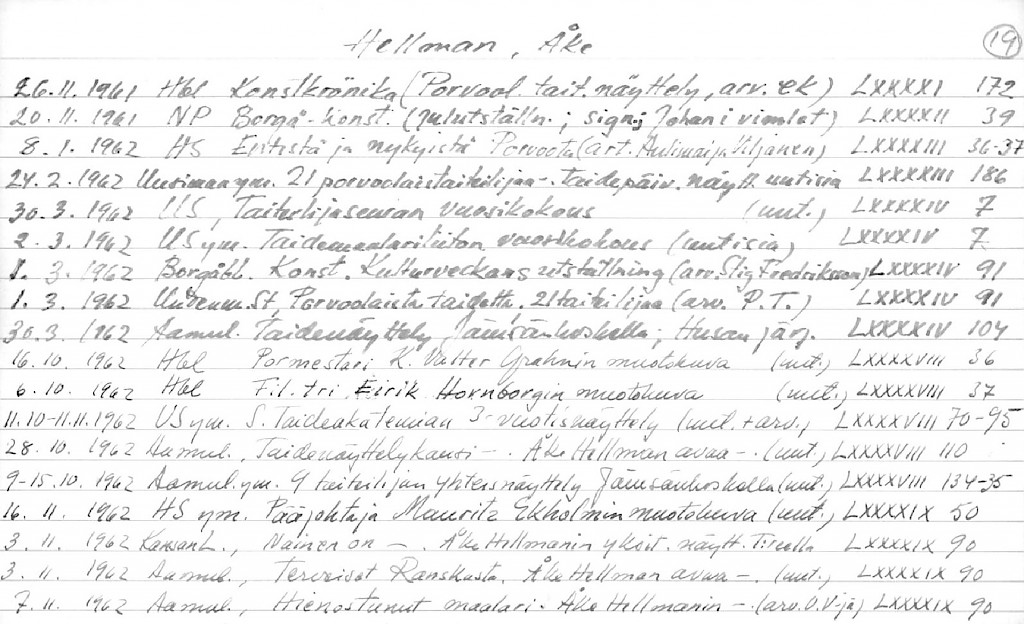 Hellman, Åke 19
26.11.1961 Hbl Konstkrönika (Porvool. tait. näyttely, arv. EK) LXXXXI 172
20.11.1961 NP Borgå-konst. (julutställn.; sign.; Johan i vimlet) LXXXXII 39
8.1.1962 HS Entistä ja nykyistä Porvoota (art. Aulimaija Viljanen) LXXXXIII 36-37
24.2.1962 Uusimaa ym. 21 porvoolaistaiteilijaa -. taidepäiv. näytt. uutisia LXXXXIII 186
30.3.1962 US, Taiteilijaseuran vuosikokous (uut.) LXXXXIV 7
2.3.1962 US ym. Taidemaalariliiton vuosikokous (uutisia) LXXXXIV 7
1.3.1962 Borgåbl. Konst. Kulturveckans utställning (arv. Stig Fredriksson) LXXXXIV 91
1.3.1962 St, Porvoolaista taidetta. 21 taiteilijaa (arv. P.T.) LXXXXIV 91
30.3.1962 Aamul. Taidenäyttely Jämsänkoskella; järj. LXXXXIV 104
16.10.1962 Hbl Pormestari K. Valter Grahnin muotokuva (uut.) LXXXXVIII 36
6.10.1962 Hbl Fil. tri Eirik Hornborgin muotokuva (uut.) LXXXXVIII 37
11.10-11.11.1962 US ym. S. Taideakatemian 3-vuotisnäyttely (uut. + arv.) LXXXXVIII 70-95
28.10.1962 Aamul., Taidenäyttelykausi -. Åke Hellman avaa -. (uut.) LXXXXVIII 110
9-15.10.1962 Aamul. ym. 9 taiteilijan yhteisnäyttely Jämsänkoskella (uut.) LXXXXVIII 134-35
16.11.1962 HS ym. Pääjohtaja Mauritz Ekholmin muotokuva (uut.) LXXXXIX 50
3.11.1962 KansanL., Nainen on -. Åke Hellmanin yksit. näytt. Tre:lla LXXXXIX 90
3.11.1962 Aamul., Terveiset Ranskasta, Åke Hellman avaa -. (uut.) LXXXXIX 90
7.11.1962 Aamul., Hienostunut maalari. Åke Hellmanin -. (arv. O.V-jä) LXXXXIX 90